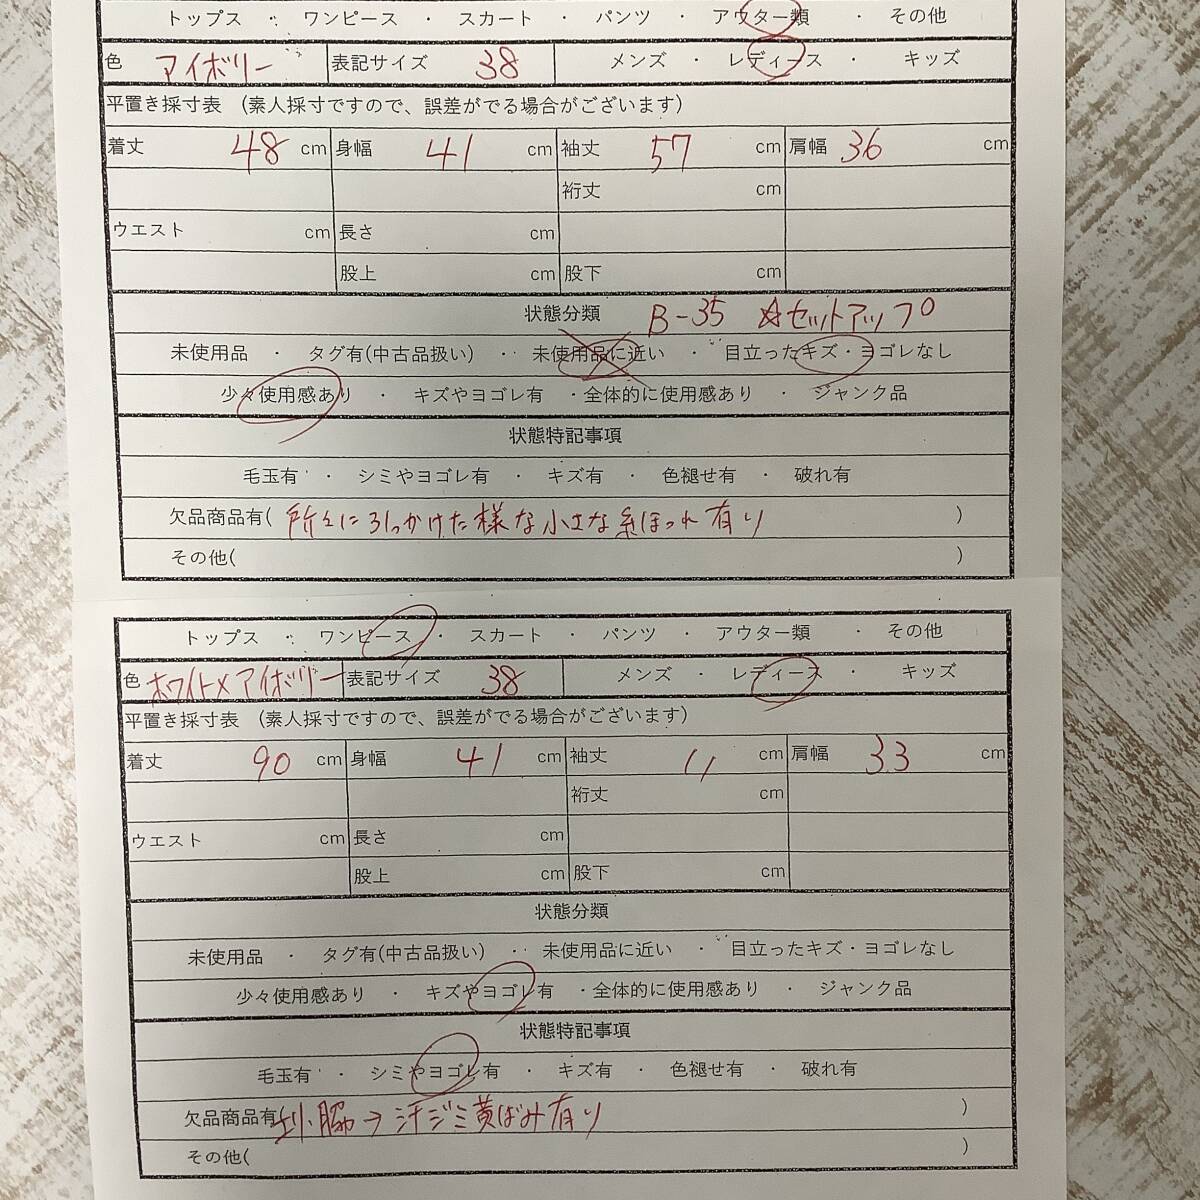 トップス ・ ワンピース ・ スカート ・ パンツ ・ アウター類 ・ その他
色 アイボリー 表記サイズ 38 メンズ ・ レディース ・ キッズ
平置き採寸表 (素人採寸ですので、誤差がでる場合がございます)
着丈 48 cm 身幅 41 cm 袖丈 57 cm 肩幅 36 cm
裄丈 cm
ウエスト cm 長さ cm
股上 cm 股下 cm
状態分類 B-35 ☆セットアップ
未使用品 ・ タグ有(中古品扱い) ・ 未使用品に近い ・ 目立ったキズ・ヨゴレなし
少々使用感あり ・ キズやヨゴレ有 ・全体的に使用感あり ・ ジャンク品
状態特記事項
毛玉有 ・ シミやヨゴレ有 ・ キズ有 ・ 色褪せ有 ・ 破れ有
欠品商品有( 所々に引っかけた様な小さな糸ほつれ有り )
その他( )
トップス ・ ワンピース ・ スカート ・ パンツ ・ アウター類 ・ その他
色 ホワイト×アイボリー 表記サイズ 38 メンズ ・ レディース ・ キッズ
平置き採寸表 (素人採寸ですので、誤差がでる場合がございます)
着丈 90 cm 身幅 41 cm 袖丈 11 cm 肩幅 33 cm
裄丈 cm
ウエスト cm 長さ cm
股上 cm 股下 cm
状態分類
未使用品 ・ タグ有(中古品扱い) ・ 未使用品に近い ・ 目立ったキズ・ヨゴレなし
少々使用感あり ・ キズやヨゴレ有 ・全体的に使用感あり ・ ジャンク品
状態特記事項
毛玉有 ・ シミやヨゴレ有 ・ キズ有 ・ 色褪せ有 ・ 破れ有
欠品商品有( 脇→汗ジミ黄ばみ有り )
その他( )